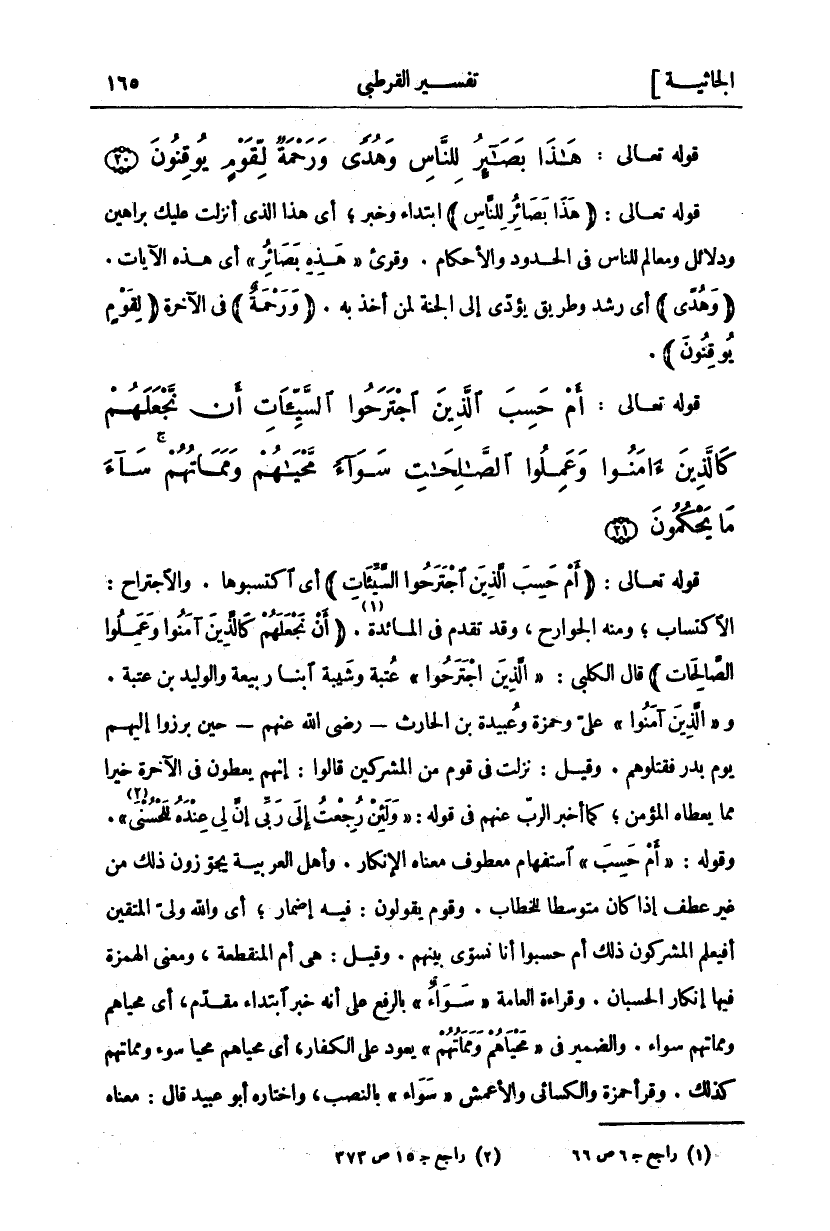 الجاثية ] تفسير القرطبى ١٦٥
قوله تعالى : هَـٰذَا بَصَـٰٓئِرُ لِلنَّاسِ وَهُدًى وَرَحْمَةٌ لِّقَوْمٍ يُوقِنُونَ ﴿٢٠﴾
قوله تعالى : ﴿ هَذَا بَصَائِرُ لِلنَّاسِ ﴾ ابتداء وخبر ؛ أى هذا الذى أنزلت عليك براهين
ودلائل ومعالم للناس فى الحدود والأحكام . وقرئ « هَذِهِ بَصَائِرُ » أى هذه الآيات .
﴿ وَهُدًى ﴾ أى رشد وطريق يؤدّى إلى الجنة لمن أخذ به . ﴿ وَرَحْمَةٌ ﴾ فى الآخرة ﴿ لِقَوْمٍ
يُوقِنُونَ ﴾ .
قوله تعالى : أَمْ حَسِبَ ٱلَّذِينَ ٱجْتَرَحُوا ٱلسَّيِّـَٔاتِ أَن نَّجْعَلَهُمْ
كَٱلَّذِينَ ءَامَنُوا وَعَمِلُوا ٱلصَّـٰلِحَـٰتِ سَوَآءً مَّحْيَاهُمْ وَمَمَاتُهُمْ ۚ سَآءَ
مَا يَحْكُمُونَ ﴿٢١﴾
قوله تعالى : ﴿ أَمْ حَسِبَ الَّذِينَ ٱجْتَرَحُوا السَّيِّئَاتِ ﴾ أى ٱكتسبوها . والٱجتراح :
الٱكتساب ؛ ومنه الجوارح ، وقد تقدم فى المـائدة (١) . ﴿ أَنْ نَجْعَلَهُمْ كَالَّذِينَ آمَنُوا وَعَمِلُوا
الصَّالِحَات ﴾ قال الكلبى : « الَّذِينَ اجْتَرَحُوا » عُتبة وشَيبة ٱبنـا ربيعة والوليد بن عتبة .
و « الَّذِينَ آمَنُوا » علىّ وحمزة وعُبيدة بن الحارث – رضى الله عنهم – حين برزوا إليهم
يوم بدر فقتلوهم . وقيل : نزلت فى قوم من المشركين قالوا : إنهم يعطون فى الآخرة خيرا
مما يعطاه المؤمن ؛ كما أخبر الربّ عنهم فى قوله : « وَلَئِنْ رُجِعْتُ إِلَى رَبِّى إِنَّ لِى عِنْدَهُ لَلْحُسْنَى (٢) » .
وقوله : « أَمْ حَسِبَ » ٱستفهام معطوف معناه الإنكار . وأهل العربية يجوّزون ذلك من
غير عطف إذا كان متوسطا للخطاب . وقوم يقولون : فيه إضمار ؛ أى والله ولىّ المتقين
أفيعلم المشركون ذلك أم حسبوا أنا نسوّى بينهم . وقيل : هى أم المنقطعة ، ومعنى الهمزة
فيها إنكار الحسبان . وقراءة العامة « سَوَاءٌ » بالرفع على أنه خبر ٱبتداء مقدّم، أى محياهم
ومماتهم سواء . والضمير فى « مَحْيَاهُمْ وَمَمَاتُهُمْ » يعود على الكفار، أى محياهم محيا سوء ومماتهم
كذلك . وقرأ حمزة والكسائى والأعمش « سَوَاء » بالنصب، واختاره أبو عبيد قال : معناه
(١) راجع جـ ٦ ص ٦٦ (٢) راجع جـ ١٥ ص ٣٧٣